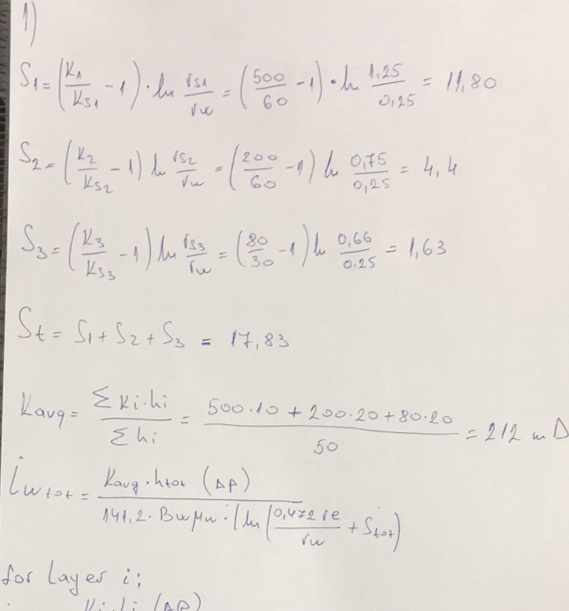 1)
S1 = (K1/KS1 - 1) · ln rS1/rw = (500/60 - 1) · ln 1,25/0,25 = 11,80
S2 = (K2/KS2 - 1) ln rS2/rw = (200/60 - 1) ln 0,75/0,25 = 4,4
S3 = (K3/KS3 - 1) ln rS3/rw = (80/30 - 1) ln 0,66/0,25 = 1,63
St = S1 + S2 + S3 = 17,83
Kavg = Σ Ki·hi / Σ hi = 500·10 + 200·20 + 80·20 / 50 = 212 mD
iw tot = Kavg · htot (Δp) / 141,2 · Bw μw · (ln (0,472 re / rw + Stot)
for layer i:
Ki·hi (Δp)